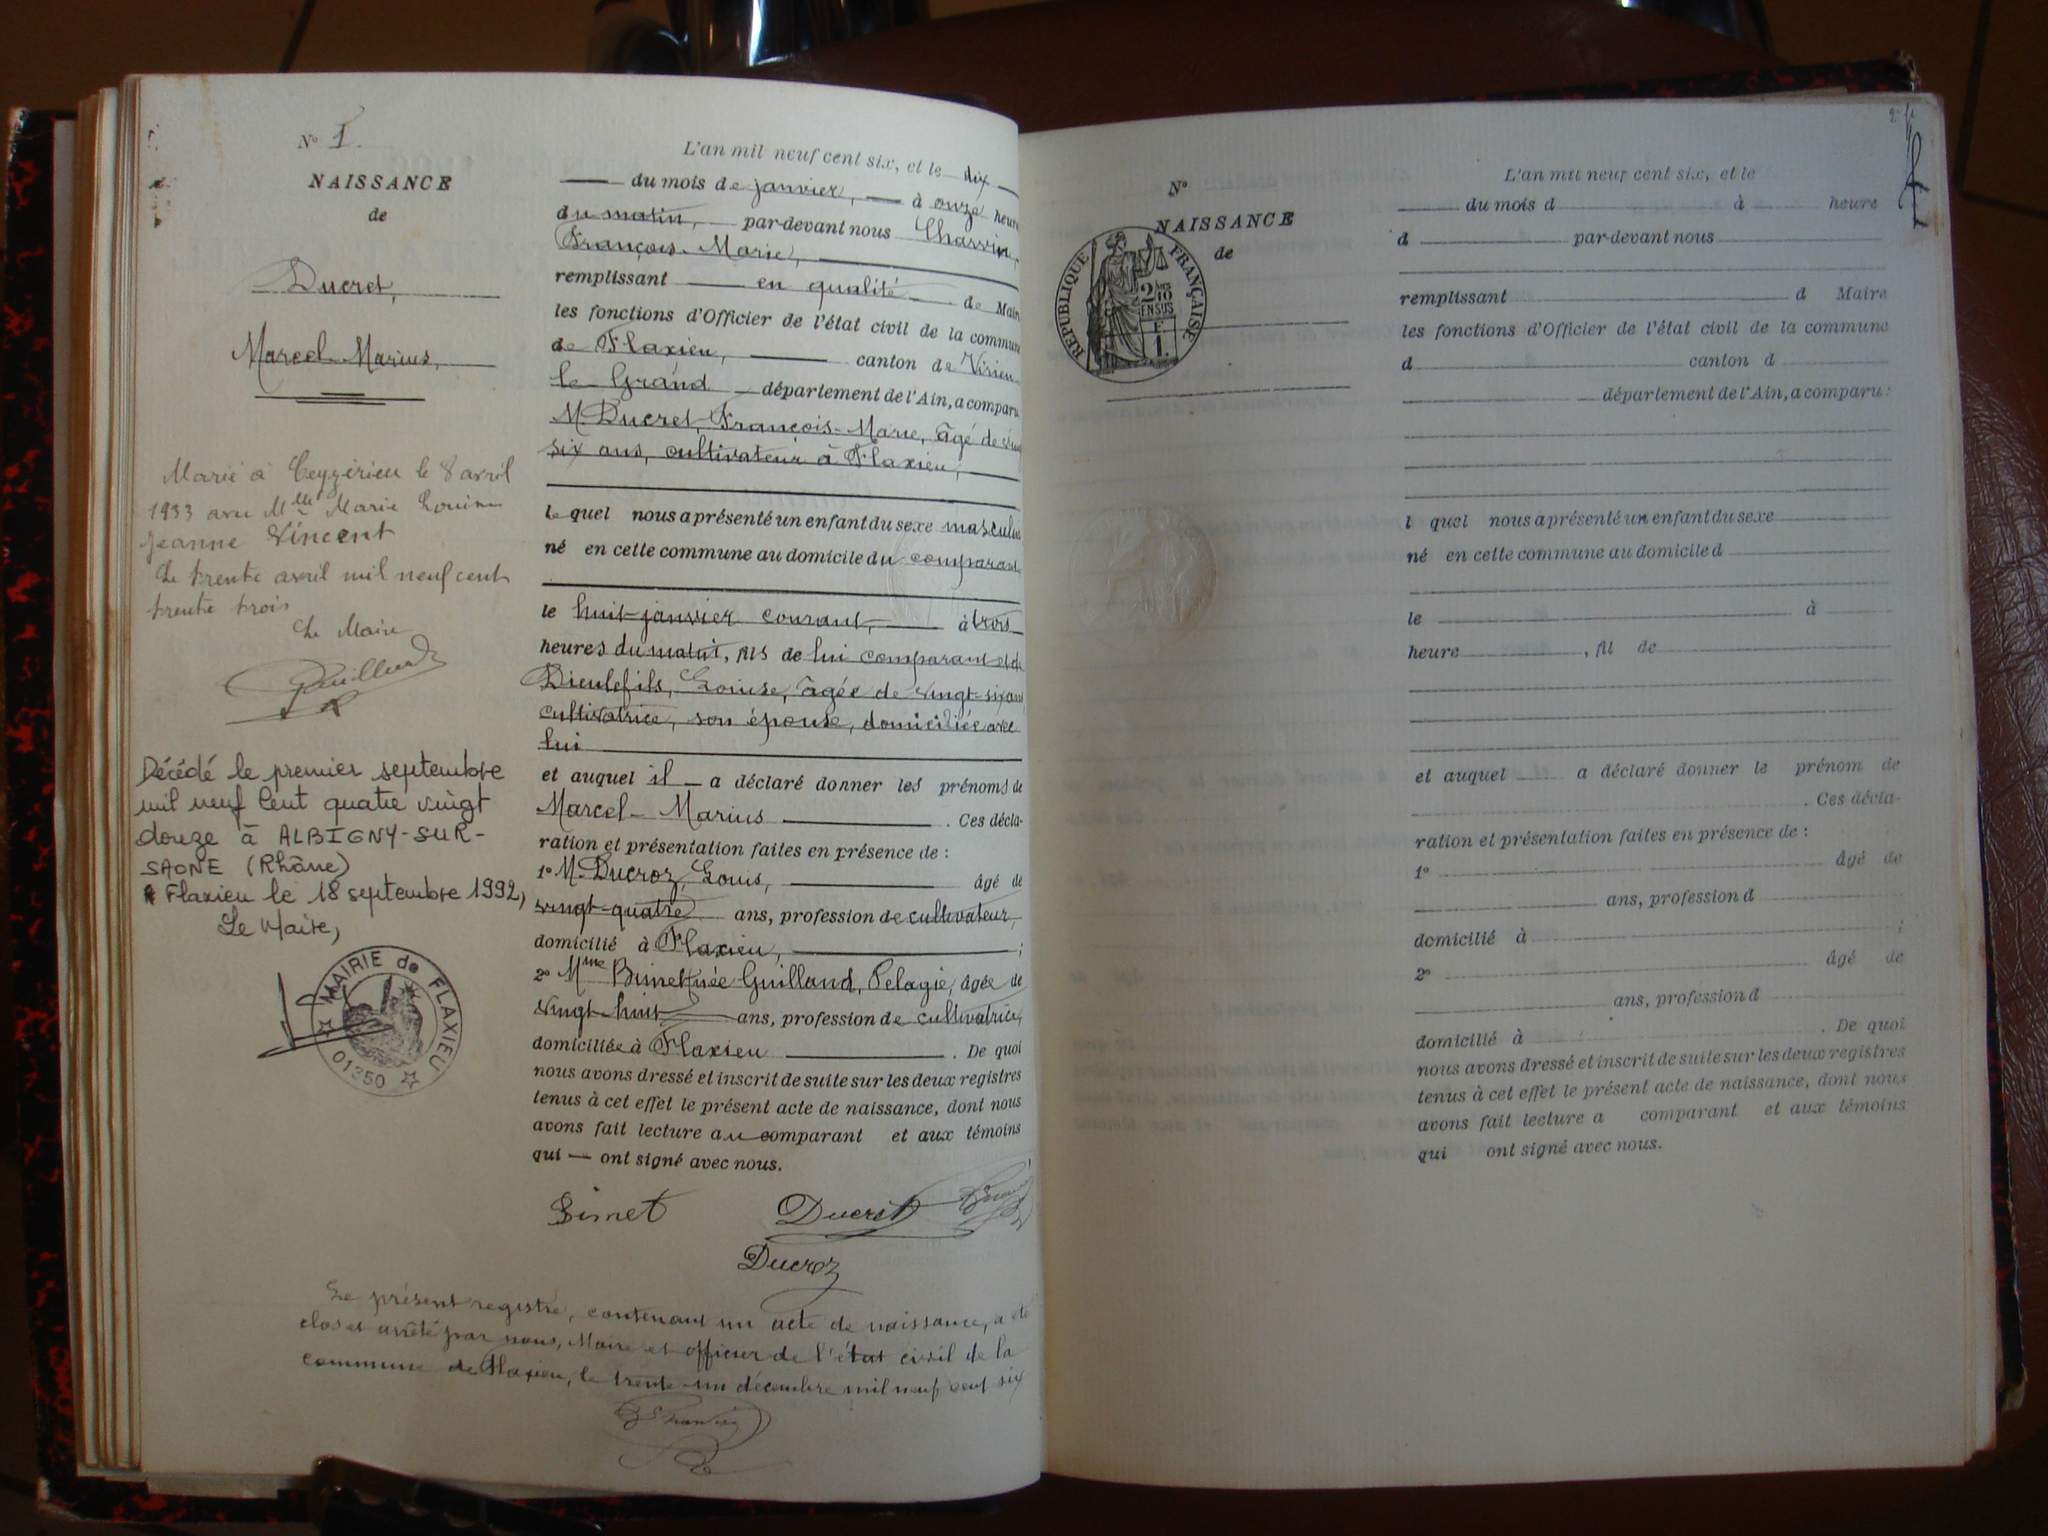 N° 1.
NAISSANCE
de
Ducret,
Marcel-Marius,
Marié à Ceyzérieu le 8 avril
1933 avec Mlle Marie Louise
Jeanne Vincent
Le trente avril mil neuf cent
trente trois
Le Maire
Décédé le premier septembre
mil neuf cent quatre vingt
douze à ALBIGNY-SUR-
SAONE (Rhône)
Flaxieu le 18 septembre 1992,
Le Maire,
MAIRIE de FLAXIEU
01350
L'an mil neuf cent six, et le dix
du mois de janvier, à onze heures
du matin, par-devant nous Charvin,
François-Marie,
remplissant en qualité de Maire
les fonctions d'Officier de l'état civil de la commune
de Flaxieu, canton de Virieu
le Grand département de l'Ain, a comparu
M. Ducret, François-Marie, âgé de vingt
six ans, cultivateur à Flaxieu,
lequel nous a présenté un enfant du sexe masculin
né en cette commune au domicile du comparant
le huit janvier courant, à trois
heures du matin, fils de lui comparant et de
Dieulefils, Louise, âgée de vingt-six ans
cultivatrice, son épouse, domiciliée avec
lui
et auquel il a déclaré donner les prénoms de
Marcel-Marius . Ces décla-
ration et présentation faites en présence de :
1° M. Ducroz, Louis, âgé de
vingt-quatre ans, profession de cultivateur,
domicilié à Flaxieu, ;
2° Mme Bimet née Guilland, Pelagie, âgée de
vingt-huit ans, profession de cultivatrice,
domiciliée à Flaxieu . De quoi
nous avons dressé et inscrit de suite sur les deux registres
tenus à cet effet le présent acte de naissance, dont nous
avons fait lecture au comparant et aux témoins
qui ont signé avec nous.
Bimet Ducret
Ducroz
Le présent registre, contenant un acte de naissance, a été
clos et arrêté par nous, Maire et officier de l'état civil de la
commune de Flaxieu, le trente-un décembre mil neuf cent six
N°
NAISSANCE
de
RÉPUBLIQUE FRANÇAISE
2/10
EN SUS
F.
1.
L'an mil neuf cent six, et le
du mois d à heure
d par-devant nous
remplissant d Maire
les fonctions d'Officier de l'état civil de la commune
d canton d
département de l'Ain, a comparu :
l quel nous a présenté un enfant du sexe
né en cette commune au domicile d
le à
heure , fil de
et auquel a déclaré donner le prénom de
. Ces décla-
ration et présentation faites en présence de :
1° âgé de
ans, profession d
domicilié à ;
2° âgé de
ans, profession d
domicilié à . De quoi
nous avons dressé et inscrit de suite sur les deux registres
tenus à cet effet le présent acte de naissance, dont nous
avons fait lecture a comparant et aux témoins
qui ont signé avec nous.